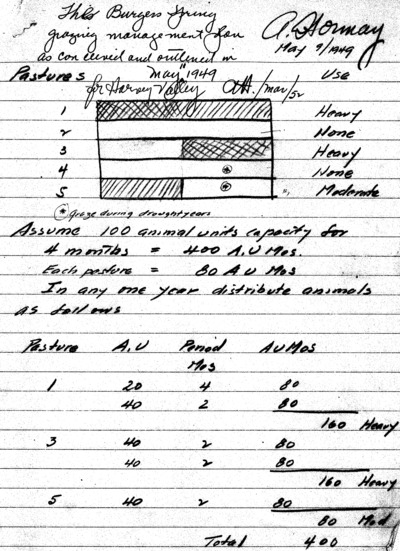 This Burgess Spring
grazing management plan
as conceived and outlined in
May 1949
for Harvey Valley AH./mar/52
A. Hormay
May 9/1949
Pastures Use
1 Heavy
2 None
3 Heavy
4 * None
5 * Moderate
* graze during drought years
Assume 100 animal units capacity for
4 months = 400 A.U Mos.
Each pasture = 80 A U Mos
In any one year distribute animals
as follows
Pasture A.U Period AU Mos
Mos
1 20 4 80
40 2 80
160 Heavy
3 40 2 80
40 2 80
160 Heavy
5 40 2 80
80 Mod
Total 400